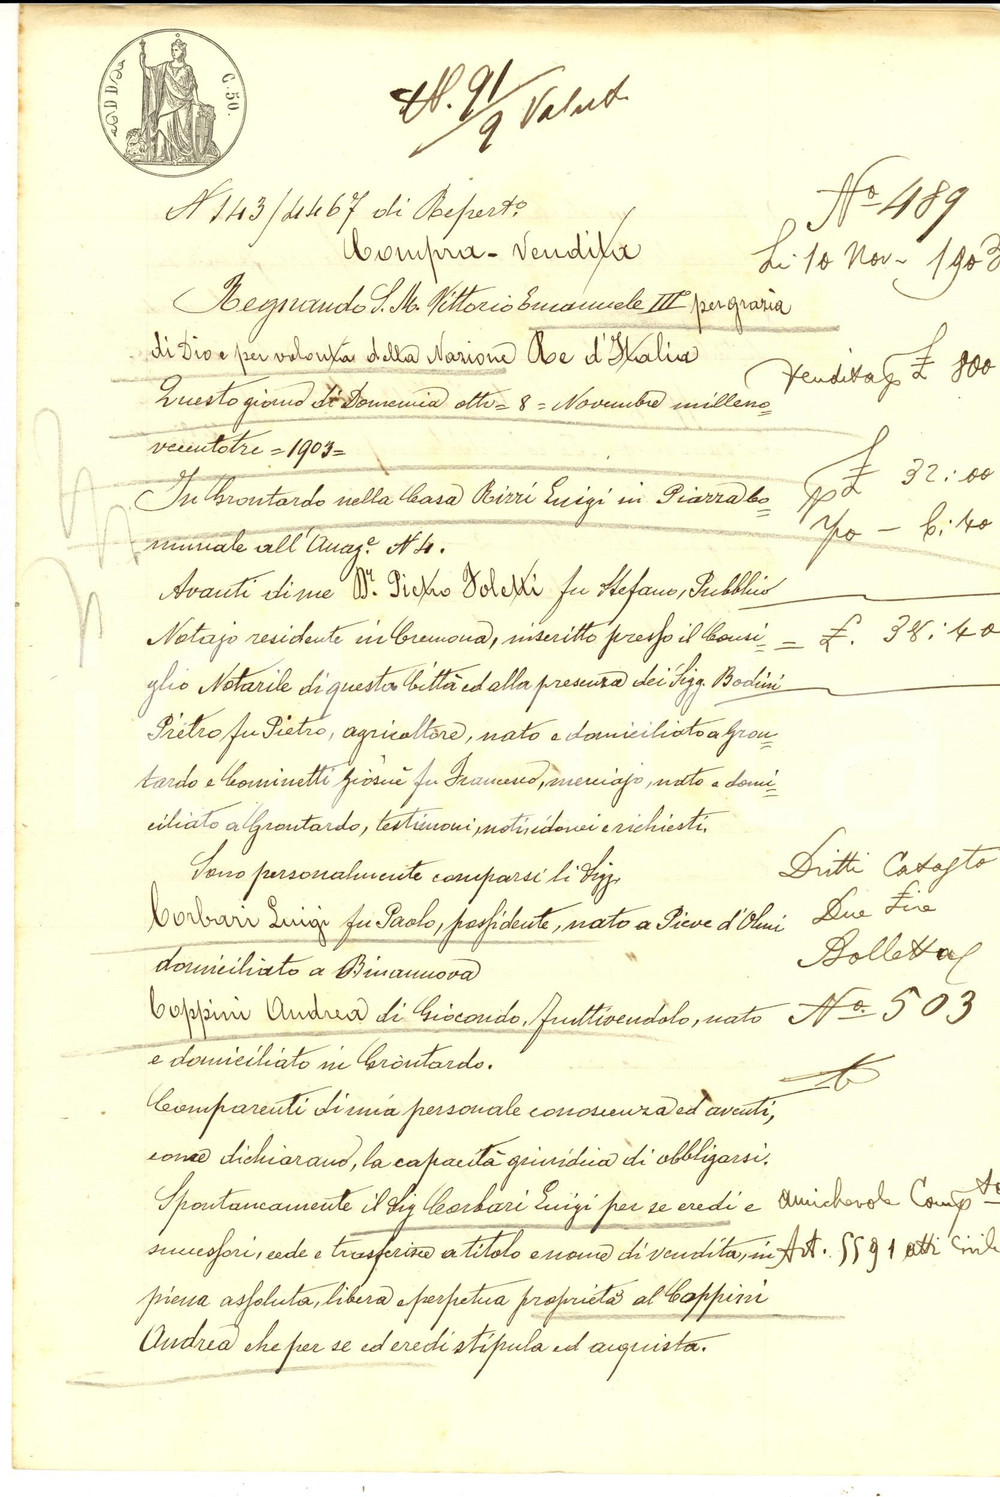 C. 50.
N. 91/9 Valut
N 143/4467 di Repert.o
No 489
Compra - Vendita
Li 10 Nov - 1903
Regnando S. M. Vittorio Emanuele III per grazia
di Dio e per volontà della Nazione Re d'Italia
Vendita £ 800
Questo giorno di Domenica otto = 8 = Novembre milleno=
vecentotre = 1903 =
In Grontardo nella Casa Rizzi Luigi in Piazza Co=
£ 32:00
munale all'Anag.e N 4.
6:40
Avanti di me Dr. Pietro Toletti fu Stefano, Pubblico
Notajo residente in Cremona, inscritto presso il Consi=
= £. 38:40
glio Notarile di questa Città ed alla presenza dei Sigg. Bodini
Pietro fu Pietro, agricoltore, nato e domiciliato a Gron=
tardo e Cominetti Giosuè fu Francesco, merciajo, nato e domi=
ciliato a Grontardo, testimoni, noti, idonei e richiesti.
Sono personalmente comparsi li Sigg.
Dritti Catasto
Corbari Luigi fu Paolo, possidente, nato a Pieve d'Olmi
Due Lire
domiciliato a Binanuova
Bolletta
Coppini Andrea di Giocondo, fruttivendolo, nato
No. 503
e domiciliato in Grontardo.
Comparenti di mia personale conoscenza ed aventi,
come dichiarano, la capacità giuridica di obbligarsi.
Spontaneamente il Sig Corbari Luigi per se eredi e
amichevole Comp.to
successori, cede e trasferisce a titolo e nome di vendita, in
Art. 5591 atti Civili
piena assoluta, libera e perpetua proprietà al Coppini
Andrea che per se ed eredi stipula ed acquista.